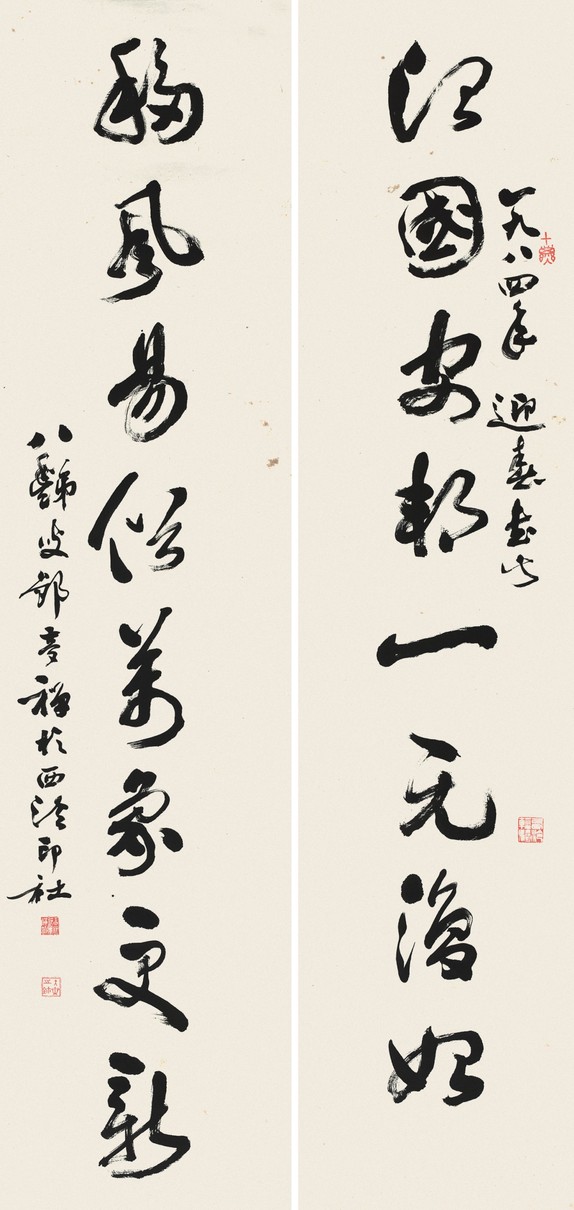 一九八四年 迎春書此
治國安邦一元復始
移風易俗萬象更新
八豑叟鄒夢禪於西泠印社